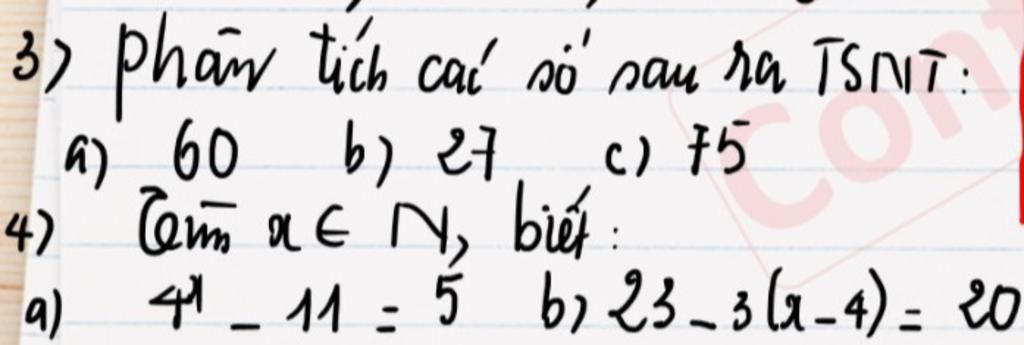 3) phân tích các số sau ra TSNT:
a) 60 b) 27 c) 75
4) Tìm x ∈ N, biết:
a) 4ˣ - 11 = 5 b) 23 - 3(x - 4) = 20
Cont